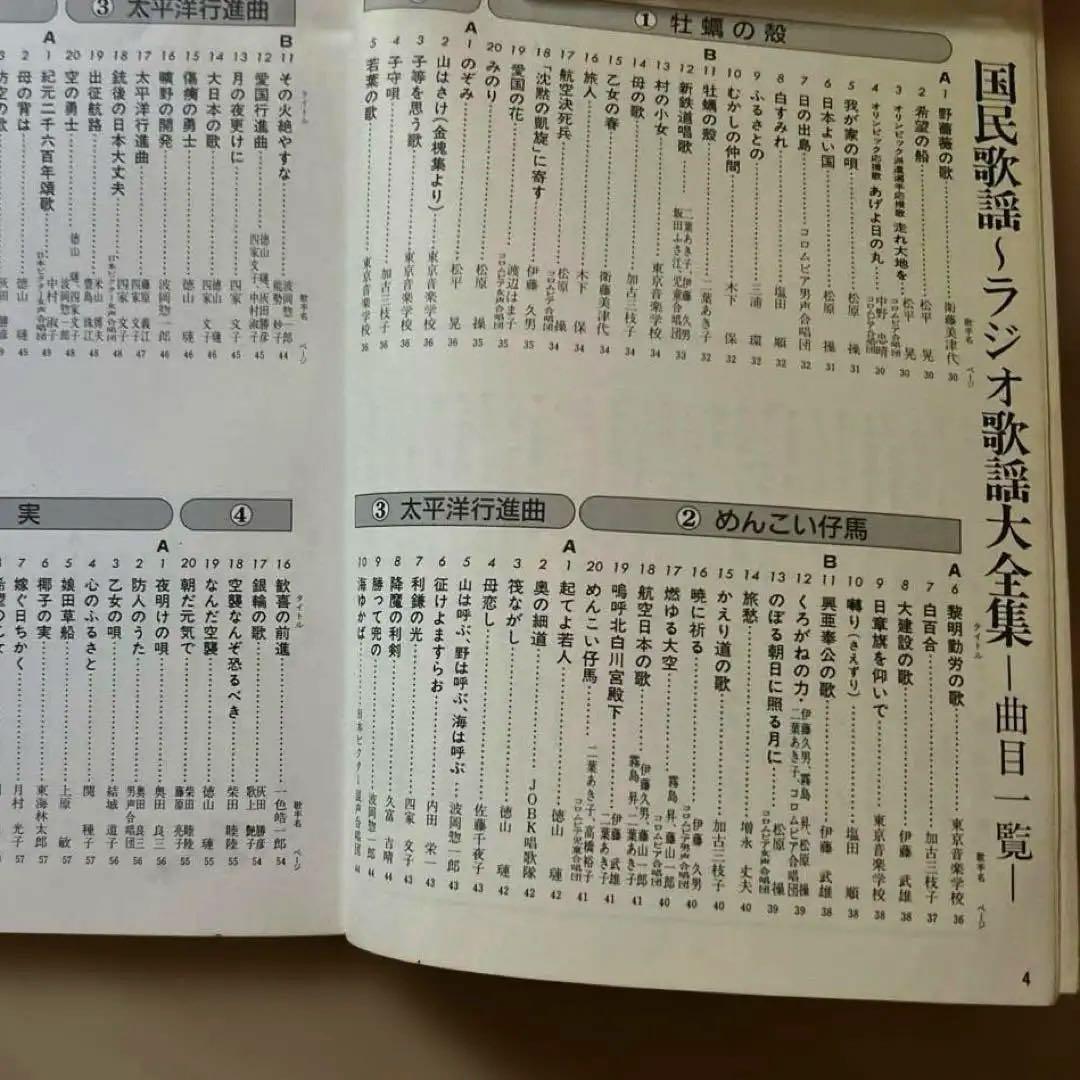 国民歌謡～ラジオ歌謡大全集―曲目一覧―
① 牡蠣の殻
歌手名 ページ
A
1 野薔薇の歌 衛藤美津代 30
2 希望の船 松平 晃 30
3 オリンピック派遣選手応援歌 走れ大地を 松平 晃 コロムビア合唱団 30
4 オリンピック応援歌 あげよ日の丸 中野 忠晴 コロムビア合唱団 30
5 我が家の唄 松原 操 31
6 日本よい国 松原 操 31
7 日の出島 コロムビア男声合唱団 32
8 白すみれ 塩田 順 32
9 ふるさとの 三浦 環 32
10 むかしの仲間 木下 保 32
B
11 牡蠣の殻 二葉あき子 32
12 新鉄道唱歌 二葉あき子、伊藤 久男 坂田ふさ江、児童合唱団 33
13 村の小女 東京音楽学校 34
14 母の歌 加古三枝子 34
15 乙女の春 衛藤美津代 34
16 旅人 木下 保 34
17 航空決死兵 松原 操 コロムビア合唱団 34
18 「沈黙の凱旋」に寄す 伊藤 久男 35
19 愛国の花 渡辺はま子 コロムビア女声合唱団 35
20 みのり 松原 操 35
A
1 のぞみ 松平 晃 36
2 山はさけ(金槐集より) 東京音楽学校 36
3 子等を思う歌 東京音楽学校 36
4 子守唄 加古三枝子 36
5 若葉の歌 東京音楽学校 36
② めんこい仔馬
タイトル 歌手名 ページ
A
6 黎明勤労の歌 東京音楽学校 36
7 白百合 加古三枝子 37
8 大建設の歌 伊藤 武雄 38
9 日章旗を仰いで 東京音楽学校 38
10 囀り(さえずり) 塩田 順 38
B
11 興亜奉公の歌 伊藤 武雄 38
12 くろがねの力 伊藤久男、霧島 昇、松原 操 二葉あき子、コロムビア合唱団 39
13 のぼる朝日に照る月に 松原 操 コロムビア女声合唱団 39
14 旅愁 増永 丈夫 40
15 かえり道の歌 加古三枝子 40
16 暁に祈る 伊藤 久男 コロムビア男声合唱団 40
17 燃ゆる大空 霧島 昇、藤山一郎 コロムビア合唱団 40
18 航空日本の歌 伊藤久男、藤山一郎 霧島 昇、二葉あき子 41
19 嗚呼北白川宮殿下 伊藤 武雄 二葉あき子 41
20 めんこい仔馬 二葉あき子、高橋裕子 コロムビア児童合唱団 41
③ 太平洋行進曲
A
1 起てよ若人 徳山 璉 42
2 奥の細道 JOBK唱歌隊 42
3 筏ながし 徳山 璉 42
4 母恋し 佐藤千夜子 43
5 山は呼ぶ、野は呼ぶ、海は呼ぶ 波岡惣一郎 43
6 征けよますらお 内田 栄一 43
7 利鎌の光 四家 文子 43
8 降魔の利剣 久富 吉晴 44
9 勝って兜の 波岡惣一郎 44
10 海ゆかば 日本ビクター混声合唱団 44
4
③ 太平洋行進曲
タイトル 歌手名 ページ
B
11 その火絶やすな 波岡惣一郎 能勢 妙子 44
12 愛国行進曲 徳山 璉、灰田勝彦 四家文子、中村淑子 45
13 月の夜更けに 四家 文子 45
14 大日本の歌 徳山 璉 四家 文子 46
15 傷痍の勇士 徳山 璉 46
16 曠野の開発 波岡惣一郎 46
17 太平洋行進曲 藤原 義江 四家 文子 47
18 銃後の日本大丈夫 四家 文子 日本ビクター合唱団 47
19 出征航路 米山 博夫 豊島 珠江 48
20 空の勇士 徳山 璉、四家文子 波岡惣一郎 48
A
1 紀元二千六百年頌歌 中村 淑子 日本ビクター女声合唱団 49
2 母の背は 徳山 璉 49
3 防空の歌 灰田 勝彦
④
タイトル 歌手名 ページ
16 歓喜の前進 一色皓一郎 54
17 銀輪の歌 灰田 勝彦 歌上 艶子 54
18 空襲なんぞ恐るべき 柴田 睦陸 55
19 なんだ空襲 徳山 璉 55
20 朝だ元気で 柴田 睦陸 藤原 亮子 55
実
A
1 夜明けの唄 奥田 良三 56
2 防人のうた 奥田 良三 男声合唱団 56
3 乙女の唄 結城 道子 56
4 心のふるさと 関 種子 57
5 娘田草船 上原 敏 57
6 椰子の実 東海林太郎 57
7 嫁ぐ日ちかく 月村 光子 57